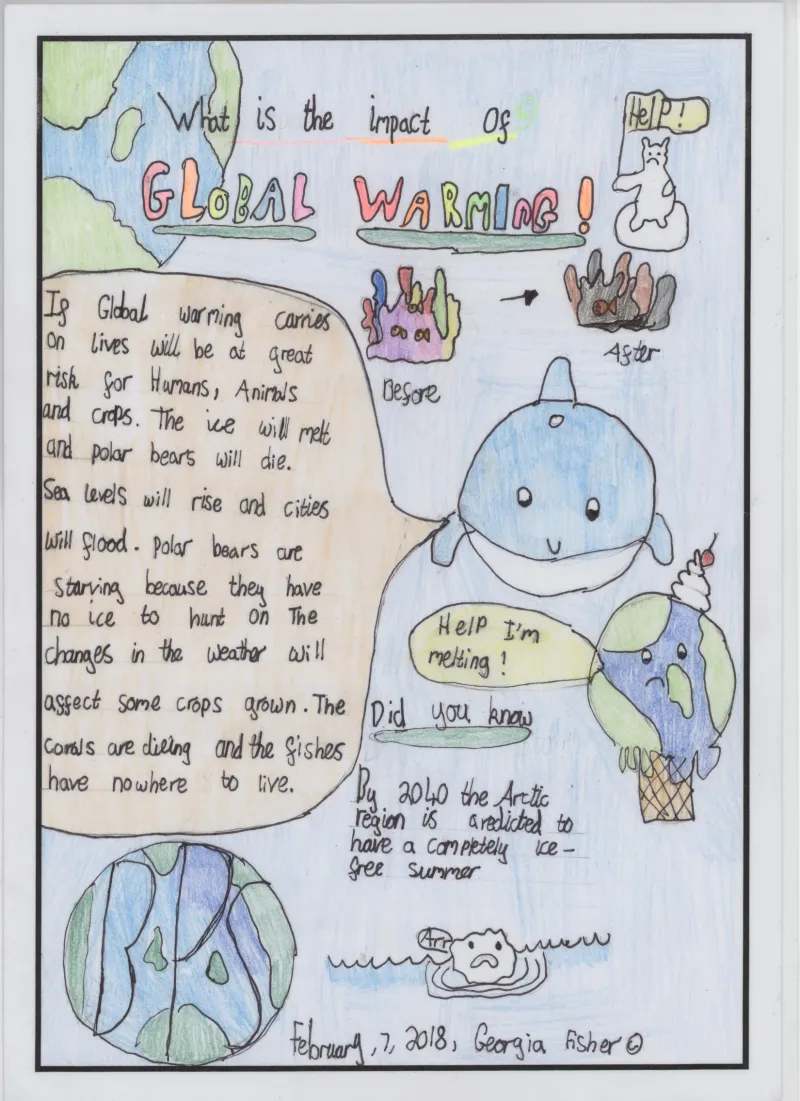 What is the impact of
GLOBAL WARMING!
HELP!
Before
After
If Global warming carries
on lives will be at great
risk for Humans, Animals
and crops. The ice will melt
and polar bears will die.
Sea levels will rise and cities
will flood. Polar bears are
starving because they have
no ice to hunt on The
changes in the weather will
affect some crops grown. The
corals are dieing and the fishes
have nowhere to live.
Help I'm
melting!
Did you know
By 2040 the Arctic
region is aredicted to
have a completely ice-
free summer
Arr
February, 7, 2018, Georgia Fisher ©